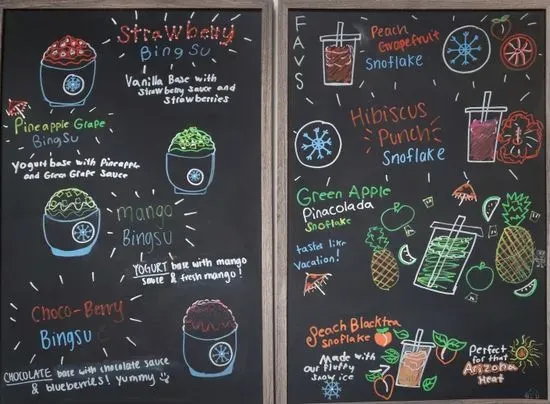 Strawberry
BingSu
Vanilla Base with
Strawberry sauce and
strawberries
Pineapple Grape
BingSu
Yogurt base with Pineapple
and Green Grape Sauce
mango
Bingsu
YOGURT base with mango
sauce & fresh mango!
Choco-Berry
Bingsu
CHOCOLATE base with chocolate sauce
& blueberries! yummy
FAVS
Peach
Grapefruit
Snoflake
Hibiscus
Punch
Snoflake
Green Apple
Pinacolada
Snoflake
tastes like
vacation!
Peach Blacktea
Snoflake
Made with
our fluffy
snow ice
Perfect
for that
Arizona
Heat